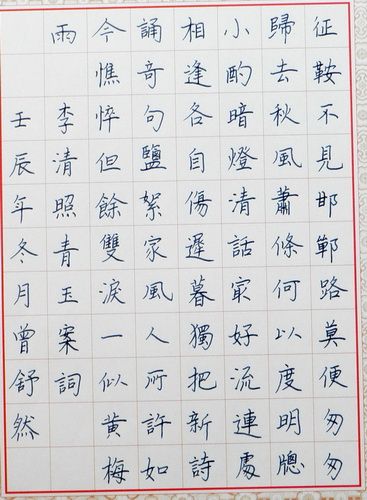 征鞍不見邯鄲路莫便匆匆
歸去秋風蕭條何以度明牕
小酌暗燈清話㝡好流連處
相逢各自傷遲暮獨把新詩
誦奇句鹽絮家風人所許如
今憔悴但餘雙淚一似黃梅
雨 李清照青玉案詞
壬辰年冬月曾舒然